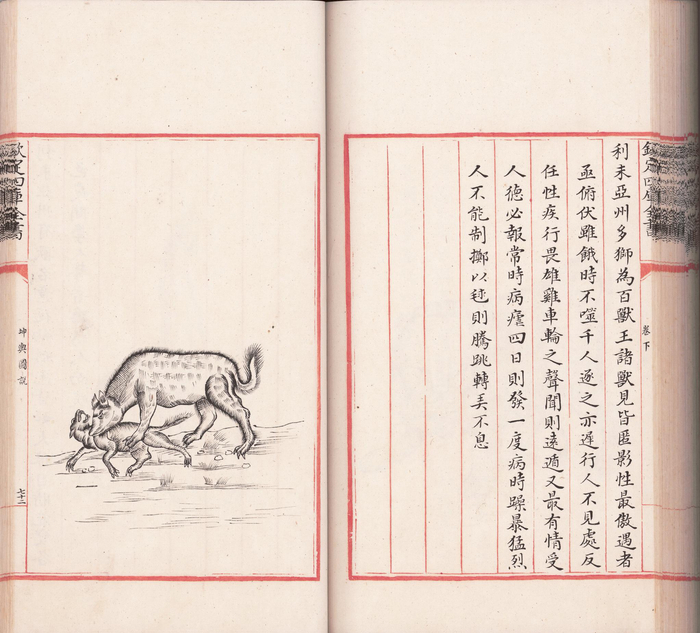 欽定四庫全書
卷下
利未亞州多獅為百獸王諸獸見皆匿影性最傲遇者
亟俯伏雖餓時不噬千人逐之亦遲行人不見處反
任性疾行畏雄雞車輪之聲聞則遠遁又最有情受
人德必報常時病瘧四日則發一度病時躁暴猛烈
人不能制擲以毬則騰跳轉弄不息
欽定四庫全書
坤輿圖説
七十二